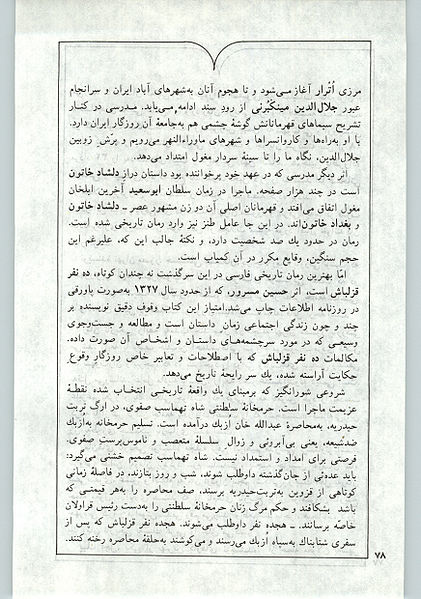 مرزی اُترار آغاز می‌شود و تا هجوم آنان به‌شهرهای آباد ایران و سرانجام
عبور جلال‌الدین مینکبُرنی از رود سند ادامه می‌یابد. مدرسی در کنار
تشریح سیماهای قهرمانانش گوشهٔ چشمی هم به‌جامعهٔ آن روزگار ایران دارد.
با او به‌راه‌ها و کاروانسراها و شهرهای ماوراءالنهر می‌رویم و پرش زوبین
جلال‌الدین، نگاه ما را تا سینهٔ سردار مغول امتداد می‌دهد.
اثر دیگر مدرسی که در عهد خود پرخواننده بود داستان دراز دلشاد خاتون
است در چند هزار صفحه. ماجرا در زمان سلطان ابوسعید آخرین ایلخان
مغول اتفاق می‌افتد و قهرمانان اصلی آن دو زن مشهور عصر ـ دلشاد خاتون
و بغداد خاتون‌اند. در این جا عامل طنز نیز وارد رمان تاریخی شده است.
رمان در حدود یك صد شخصیت دارد، و نکتهٔ جالب این که، علیرغم این
حجم سنگین، وقایع مکرر در آن کمیاب است.
امّا بهترین رمان تاریخی فارسی در این سرگذشت نه چندان کوتاه، ده نفر
قزلباش است، اثر حسین مسرور، که از حدود سال ۱۳۲۷ به‌صورت پاورقی
در روزنامه اطلاعات چاپ می‌شد. امتیاز این کتاب وقوف دقیق نویسنده بر
چند و چون زندگی اجتماعی زمان داستان است و مطالعه و جست‌وجوی
وسیعی که در مورد سرچشمه‌های داستان و اشخاص آن صورت داده.
مکالمات ده نفر قزلباش که با اصطلاحات و تعابیر خاص روزگارِ وقوع
حکایت آراسته شده، یك سر رایحهٔ تاریخ می‌دهد.
شروعی شورانگیز که برمبنای یك واقعهٔ تاریخی انتخاب شده نقطهٔ
عزیمت ماجرا است. حرمخانهٔ سلطنتی شاه تهماسب صفوی، در ارگ تربت
حیدریه، به‌محاصرهٔ عبدالله خان اُزبك درآمده است. تسلیم حرمخانه به‌اُزبك
ضدشیعه، یعنی بی‌آبروئی و زوال سلسلهٔ متعصب و ناموس‌پرستِ صفوی.
فرصتی برای امداد و استمداد نیست. شاه تهماسب تصمیم خشنی می‌گیرد:
باید عده‌ئی از جان‌گذشته داوطلب شوند، شب و روز بتازند، در فاصلهٔ زمانی
کوتاهی از قزوین به‌تربت‌حیدریه برسند، صف محاصره را به‌هر قیمتی که
باشد بشکافند و حکم مرگ زنان حرمخانهٔ سلطنتی را به‌دست رئیس قراولان
خاصّه برسانند. ـ هجده نفر داوطلب می‌شوند. هجده نفر قزلباش که پس از
سفری شتابناك به‌سپاه اُزبك می‌رسند و می‌کوشند به‌حلقهٔ محاصره رخنه کنند.
۷۸